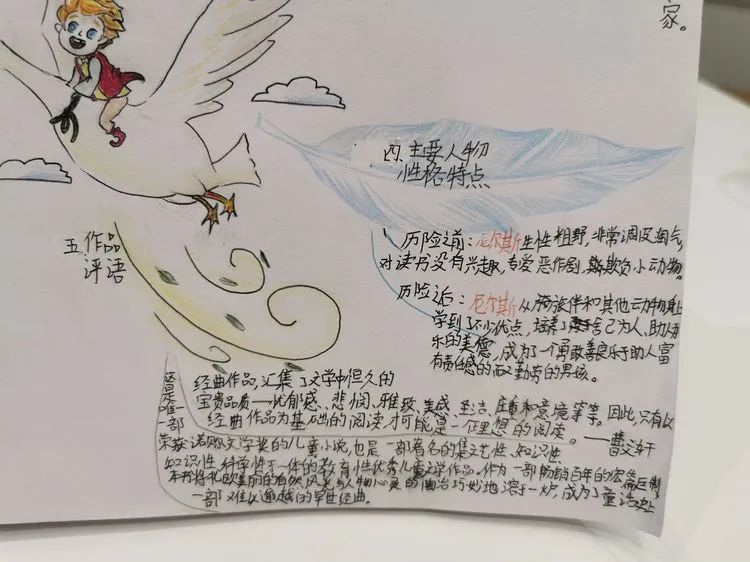 家。
四.主要人物
性格特点
历险之前：尼尔斯生性粗野，非常调皮淘气，
对读书没有兴趣，专爱恶作剧，欺负小动物。
历险之后：尼尔斯从旅伴和其他动物身上
学到了不少优点，培养了舍己为人、助人为
乐的美德，成为了一个勇敢善良乐于助人富
有责任感的而又勤劳的男孩。
五.作品
评语
经典作品，汇集了文学中恒久的
宝贵品质——忧郁感、悲悯、雅致、美感、圣洁、庄重和意境等等。因此，只有以
经典作品为基础的阅读才可能是一种理想的阅读。——曹文轩
这是唯一一部
荣获诺贝尔文学奖的儿童小说，也是一部著名的集文艺性、知识性
知识性、科学性于一体的教育性优秀儿童文学作品。作为一部畅销百年的宏篇巨制
本书将北欧美丽的自然风光与人物心灵的陶冶巧妙地溶于一炉，成为了童话史上
一部难以逾越的罕世经典。